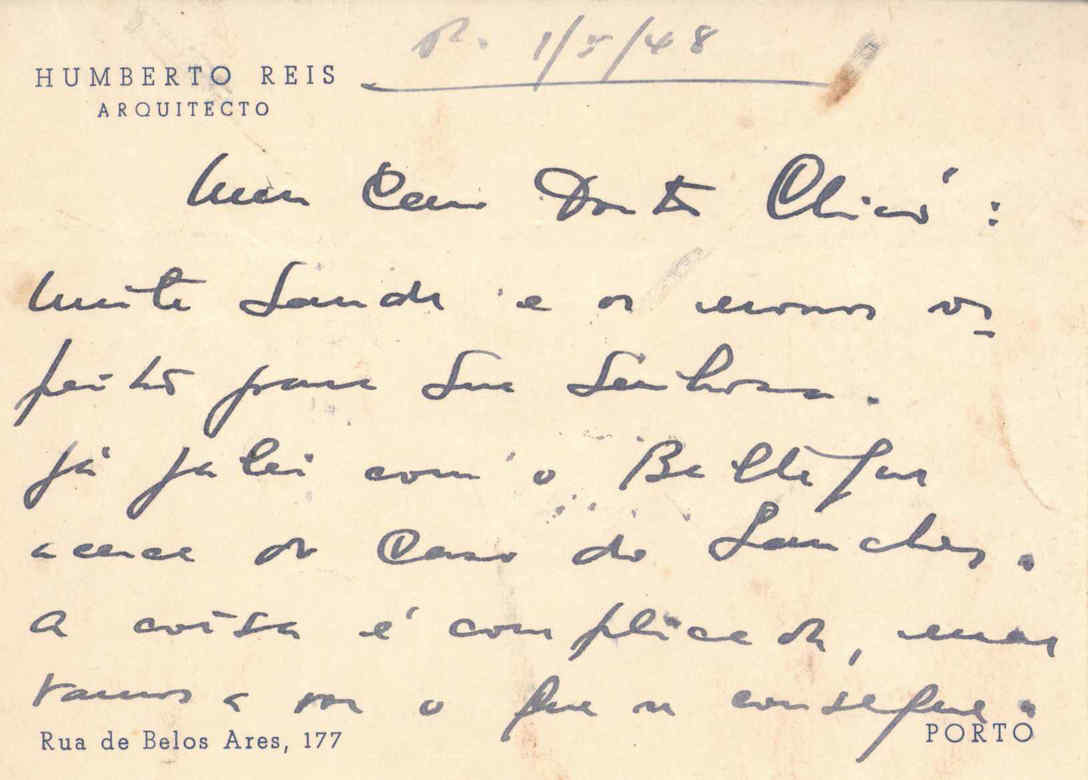 R. 1/5/48
HUMBERTO REIS
ARQUITECTO
Meu Caro Doutor Chicó:
muita saude e os nossos res
peitos para Sua Senhora.
Já falei com o
acerca do caso do Sanches.
A coisa é complicada, mas
vamos a ver o que se consegue.
Rua de Belos Ares, 177
PORTO